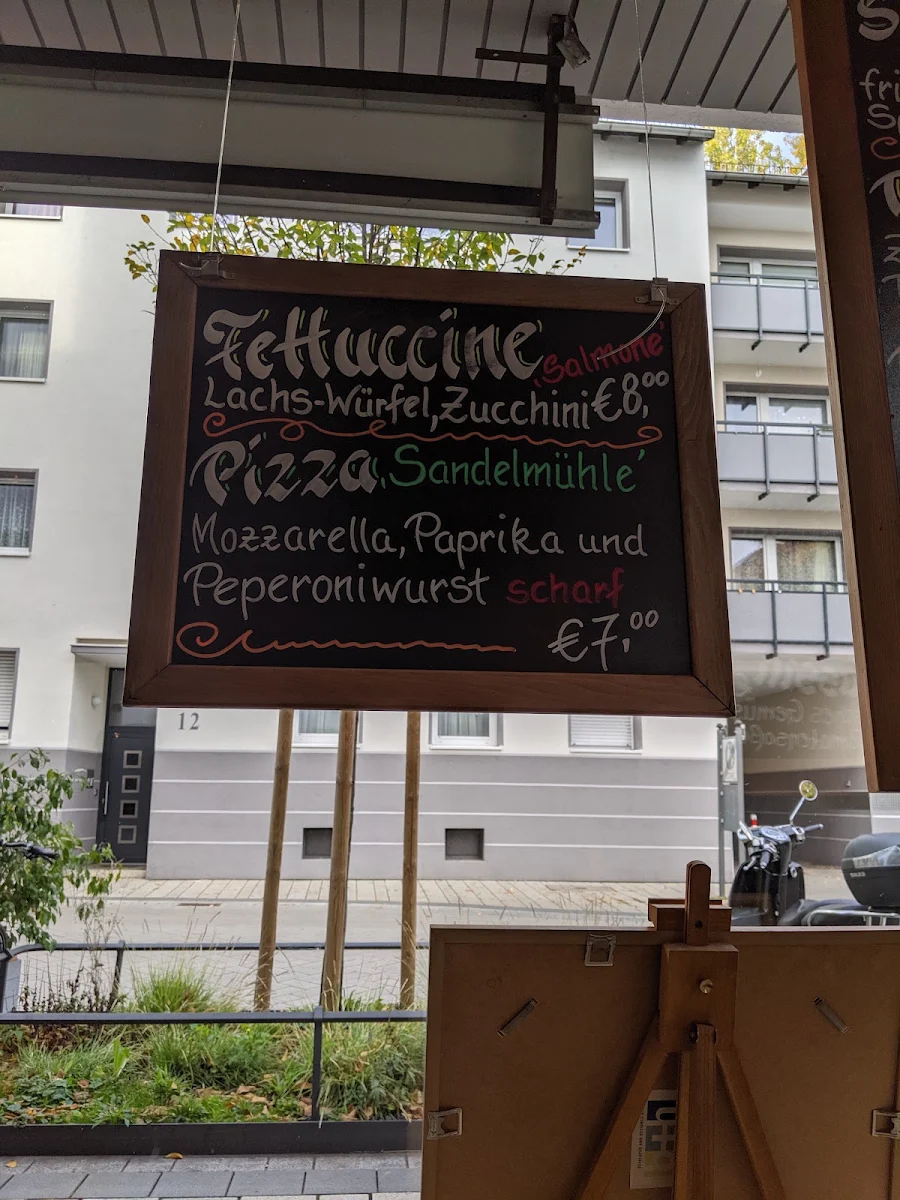 Fettuccine 'Salmone'
Lachs-Würfel, Zucchini €8,00
Pizza 'Sandelmühle'
Mozzarella, Paprika und
Peperoniwurst scharf
€7,00
12